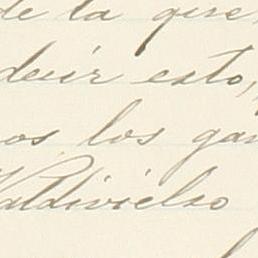 de la que
decir esto,
os los ga
Valdivielso